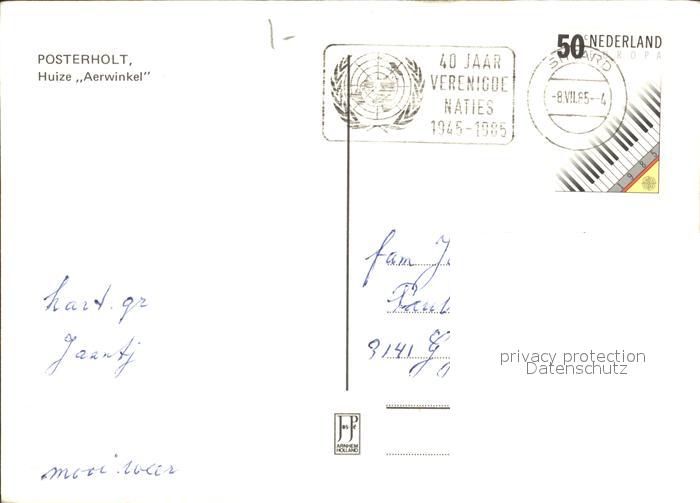 POSTERHOLT,
Huize „Aerwinkel”
1-
40 JAAR
VERENIGDE
NATIES
1945-1985
SITTARD
-8.VII.85.-4
50c NEDERLAND
EUROPA
1985
hart. gr
Jaantj
mooi weer
fam J
9141 G
privacy protection
Datenschutz
JosPé
ARNHEM
HOLLAND